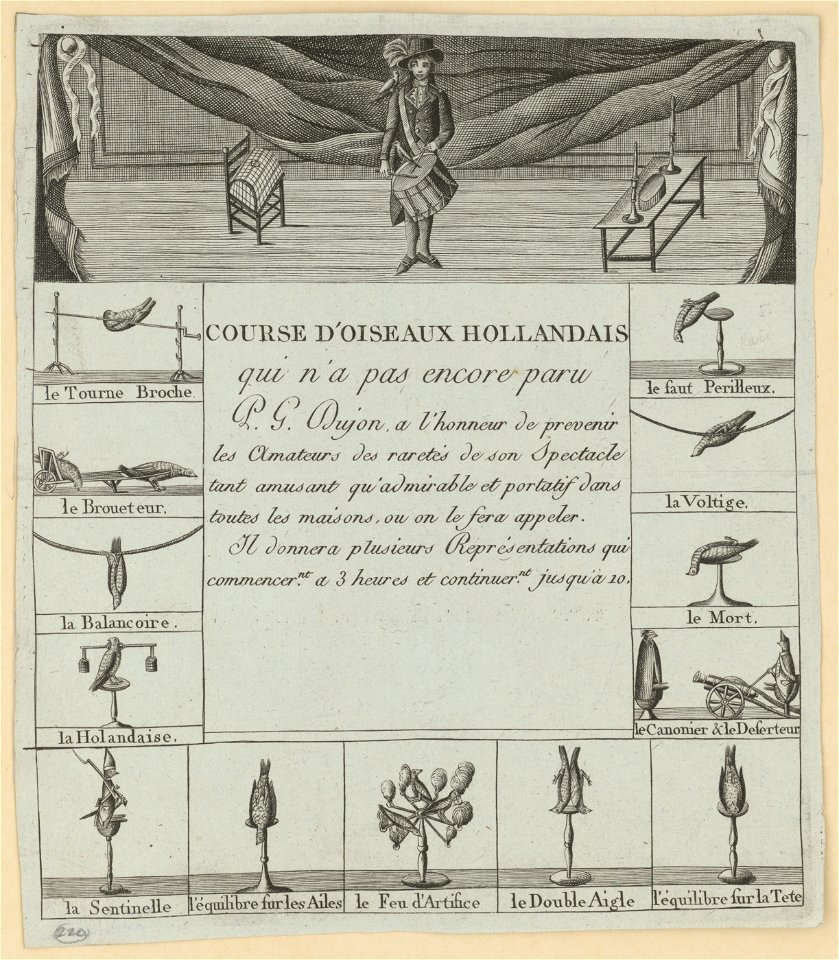 COURSE D'OISEAUX HOLLANDAIS
qui n'a pas encore paru
P. G. Dujon, a l'honneur de prevenir
les Amateurs des raretés de son Spectacle
tant amusant qu'admirable et portatif dans
toutes les maisons, ou on le fera appeler.
Il donnera plusieurs Représentations qui
commencer.nt a 3 heures et continuer.nt jusqu'à 10.
le Tourne Broche.
le Broueteur.
la Balancoire.
la Holandaise.
le ſaut Perilleux.
la Voltige.
le Mort.
le Canonier & le Deſerteur
la Sentinelle
l'équilibre ſur les Ailes
le Feu d'Artifice
le Double Aigle
l'équilibre ſur la Tete
220